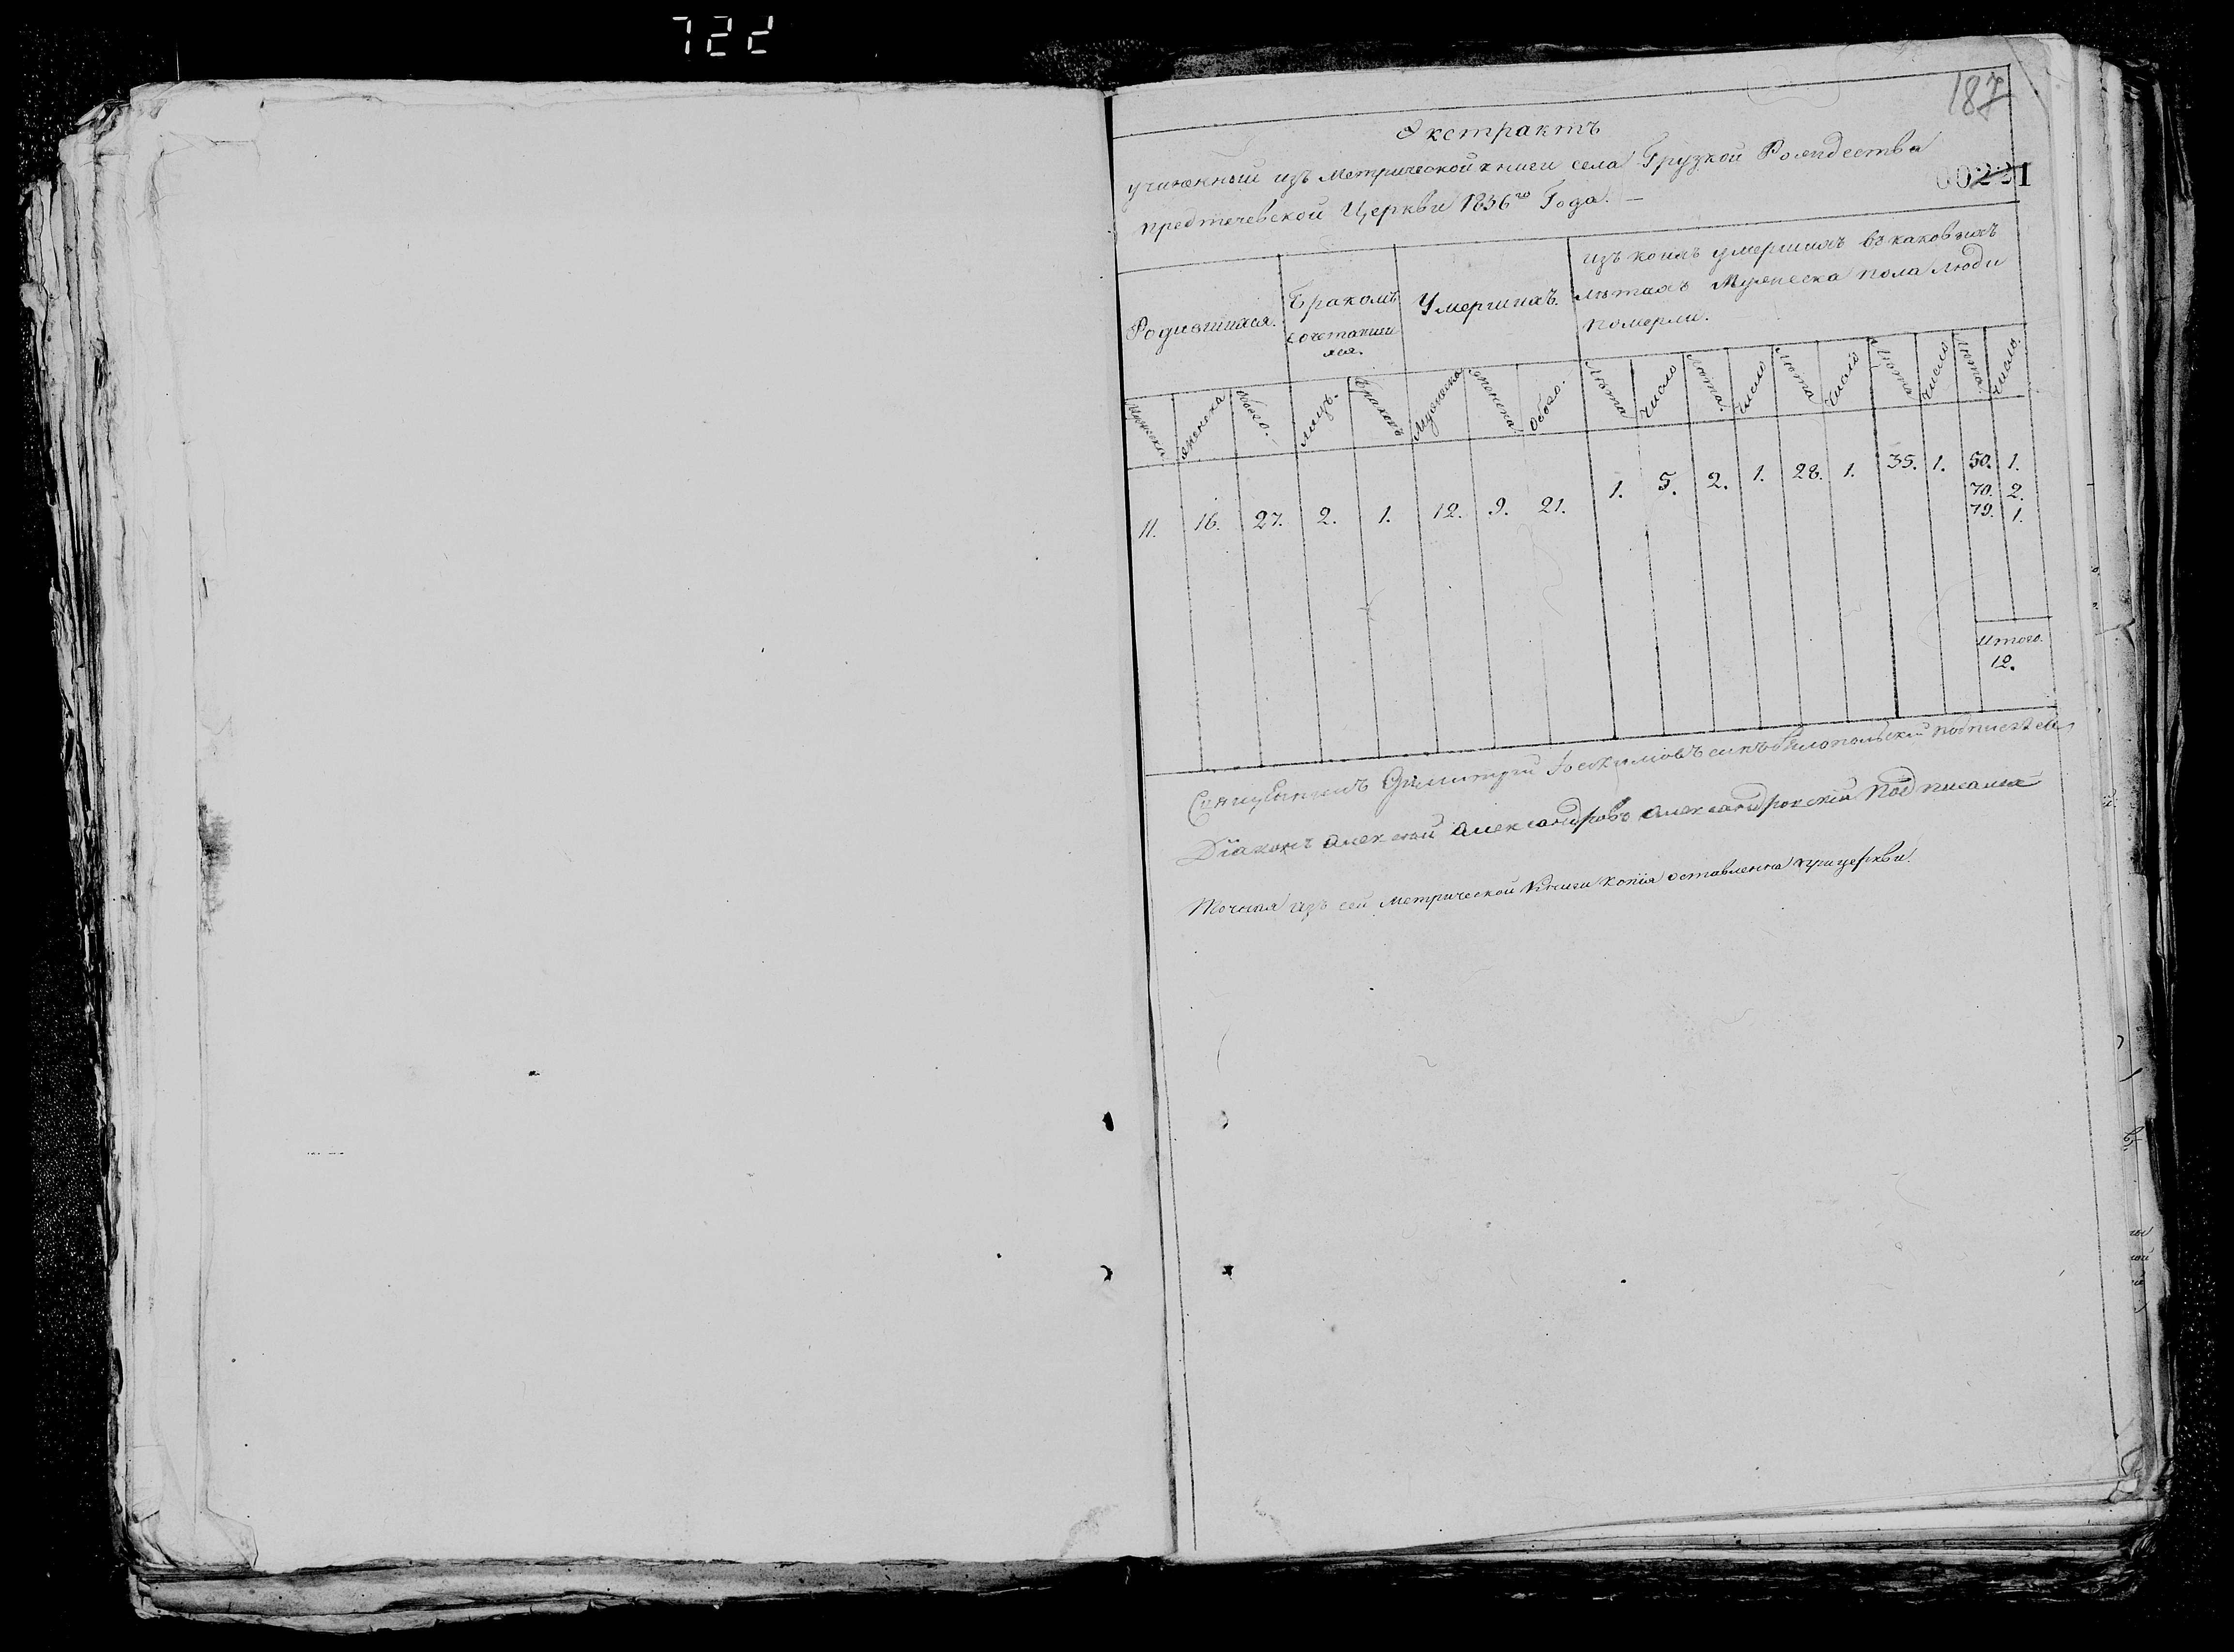 722
187
Экстрактъ
учиненный изъ Метрической книги села Грузкой Рождества
00221
предтечевской Церкви 1836го Года. —
Родившихся.
Бракомъ
сочетавши
хся.
Умершихъ.
изъ коихъ умершихъ въ каковыхъ
лѣтахъ Мужеска пола люди
померли.
Мужеска женска обоего. лицъ. браковъ Мужеска женска Обоего. Лѣта Число Лѣта. Число Лѣта Число Лѣта Число Лѣта Число.
11. 16. 27. 2. 1. 12. 9. 21. 1. 5. 2. 1. 28. 1. 35. 1. 50. 1.
70. 2.
79. 1.
итого.
12.
Священникъ Димитрій Іоакимовъ сынъ Бѣлопольскій подписался
Діаконъ Алексѣй Александровъ Александровскій Подписался
Точная изъ сей Метрической Книги копія оставленна прицеркви.